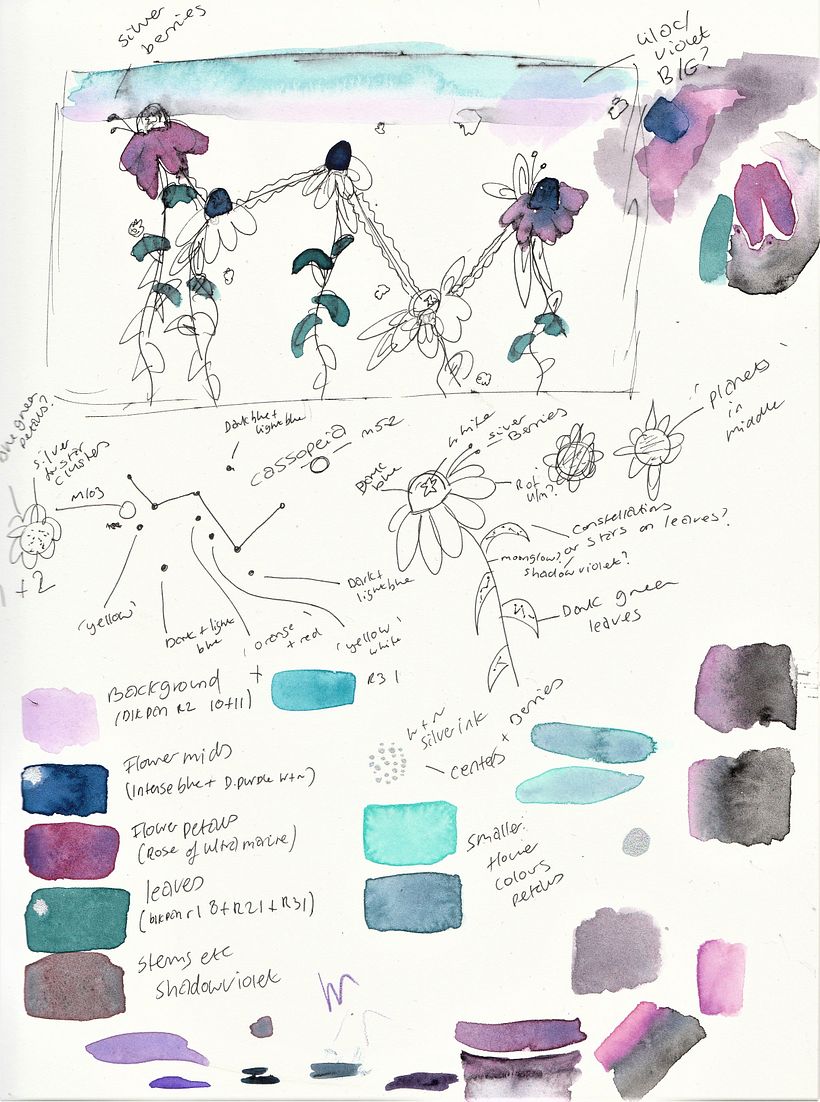 silver
berries
lilac/
violet
B/G?
planets
in
middle
one green
petals?
silver
star
clusters
M103
+2
Dark blue +
light blue
cassopeia M52
'yellow'
Dark + light
blue
'orange
+ red'
'yellow'
white
Dark +
light blue
Dark
blue
white
silver
Berries
R of
Ulm?
constellations
or stars on leaves?
moonglow?
shadowviolet?
Dark green
leaves
Background
(DIK pen R2 10+11)
+
R31
Flower mids
(Intense blue + D.purple W+N)
Flower petals
(Rose of Ultramarine)
leaves
(DIK pen r1 8+R21+R31)
stems etc
shadowviolet
W+N
silver ink
centers + berries
smaller
flower
colours
petals